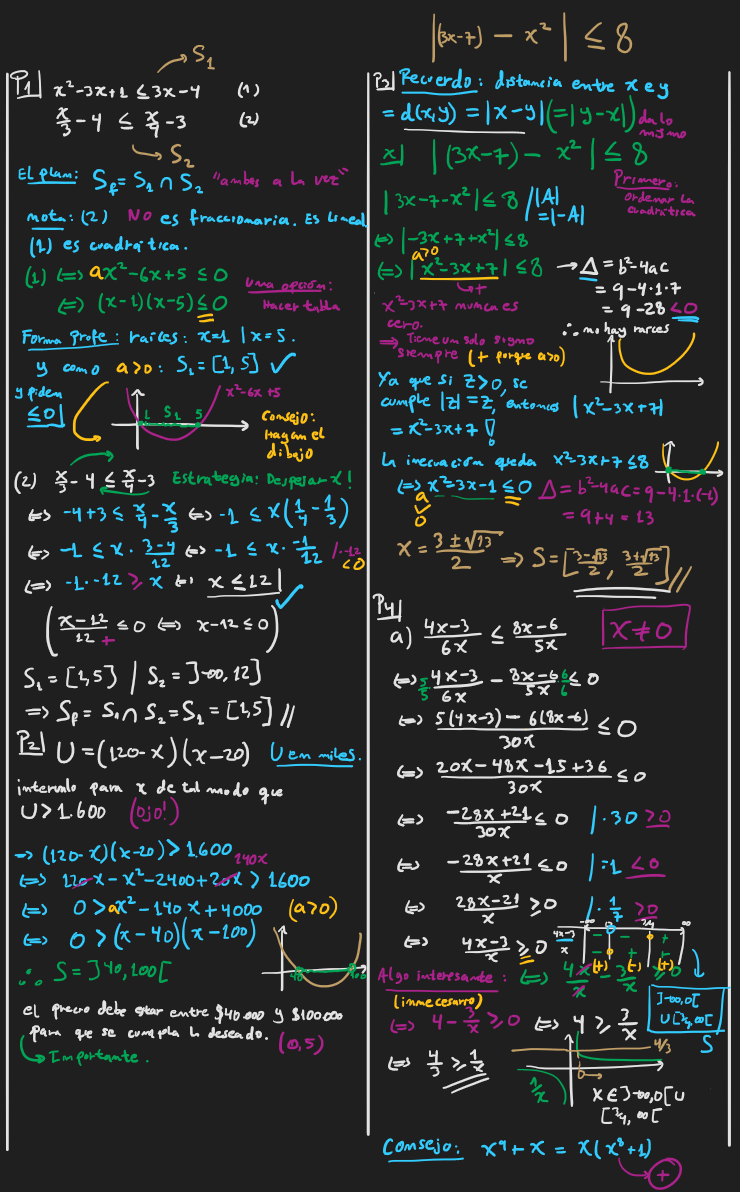 |(3x-7) - x²| ≤ 8
P1| x²-3x+1 ≤ 3x-4 (1)
→ S₁
x/3 - 4 ≤ x/4 - 3 (2)
→ S₂
El plan: Sf = S₁ ∩ S₂ "ambos a la vez"
nota: (2) NO es fraccionaria. Es lineal
(1) es cuadrática.
(1) ⇔ ax²-6x+5 ≤ 0
⇔ (x-1)(x-5) ≤ 0
Una opción:
Hacer tabla
Forma profe: raíces: x=1 | x=5.
y como a>0: S₁ = [1,5] ✓
y piden
≤0|
x²-6x+5
1 S₁ 5
Consejo:
Hagan el
dibujo
(2) x/3 - 4 ≤ x/4 - 3 Estrategia: Despejar x!
⇔ -4+3 ≤ x/4 - x/3 ⇔ -1 ≤ x(1/4 - 1/3)
⇔ -1 ≤ x · (3-4)/12 ⇔ -1 ≤ x · -1/12 /·-12 <0
⇔ -1·-12 ≥ x ⇔ x ≤ 12 |
((x-12)/12 ≤ 0 ⇔ x-12 ≤ 0) ✓
+
S₁ = [1,5] | S₂ = ]-∞, 12]
⇒ Sf = S₁ ∩ S₂ = S₁ = [1,5] //
P2| U = (120-x)(x-20) U en miles.
intervalo para x de tal modo que
U > 1.600 (ojo!)
→ (120-x)(x-20) > 1.600
140x
⇔ 120x - x² - 2400 + 20x > 1600
⇔ 0 > ax² - 140x + 4000 (a>0)
⇔ 0 > (x-40)(x-100)
∴ S = ]40,100[
40 100
el precio debe estar entre $40.000 y $100.000
para que se cumpla lo deseado. (0,5)
→ Importante.
P3| Recuerdo: distancia entre x e y
= d(x,y) = |x-y| (=|y-x|) da lo
mismo
x| |(3x-7) - x²| ≤ 8
Primero:
Ordenar la
cuadrática
|3x-7-x²| ≤ 8 / |A|
=|-A|
⇔ |-3x+7+x²| ≤ 8
a>0
⇔ |x²-3x+7| ≤ 8 → Δ = b²-4ac
+
= 9-4·1·7
= 9-28 <0
x²-3x+7 nunca es
cero.
∴ no hay raíces
⇒ Tiene un solo signo
siempre (+ porque a>0)
Ya que si z>0, se
cumple |z|=z, entonces |x²-3x+7|
= x²-3x+7 !
La inecuación queda x²-3x+7 ≤ 8
⇔ x²-3x-1 ≤ 0 Δ = b²-4ac = 9-4·1·(-1)
a
∨
0
= 9+4 = 13
x = (3±√13)/2 ⇒ S = [(3-√13)/2, (3+√13)/2] //
P4|
a) (4x-3)/6x ≤ (8x-6)/5x
x≠0
⇔ 5/5 (4x-3)/6x - (8x-6)/5x 6/6 ≤ 0
⇔ (5(4x-3) - 6(8x-6))/30x ≤ 0
⇔ (20x-48x-15+36)/30x ≤ 0
⇔ (-28x+21)/30x ≤ 0 /·30 >0
⇔ (-28x+21)/x ≤ 0 /·-1 <0
⇔ (28x-21)/x ≥ 0 /·1/7 >0
⇔ (4x-3)/x ≥ 0
-∞ 0 3/4 ∞
4x-3 - - +
x - + +
(+) (-) (+)
Algo interesante: ⇔ 4x/x - 3/x ≥ 0
(innecesario)
]-∞,0[
U [3/4, ∞[
S
⇔ 4 - 3/x ≥ 0 ⇔ 4 ≥ 3/x
⇔ 4/3 ≥ 1/x
4/3
1/x
0
x ∈ ]-∞,0[ U
[3/4, ∞[
Consejo: x⁹+x = x(x⁸+1)
→ +